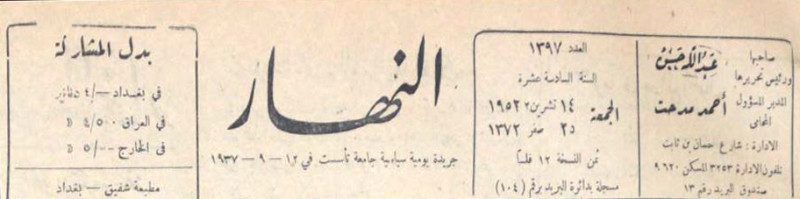 صاحبها
ورئيس تحريرها
عبدالله حسن
المدير المسؤول
المحامي
أحمد مدحت
الادارة : شارع حسان بن ثابت
تلفون الادارة ٣٢٥٣ للسكن ٩٦٢٠
صندوق البريد رقم ١٣
العدد ١٣٩٧
السنة السادسة عشرة
الجمعة
١٤ تشرين٢ ١٩٥٢
٢٥ صفر ١٣٧٢
ثمن النسخة ١٢ فلسا
مسجلة بدائرة البريد برقم (١٠٤)
النهار
جريدة يومية سياسية جامعة تأسست في ١٢ - ٩ - ١٩٣٧
بدل المشاركة
في بغداد -/٤ دنانير
في العراق ٤/٥٠٠ د
في الخارج -/٥ د
مطبعة شفيق - بغداد